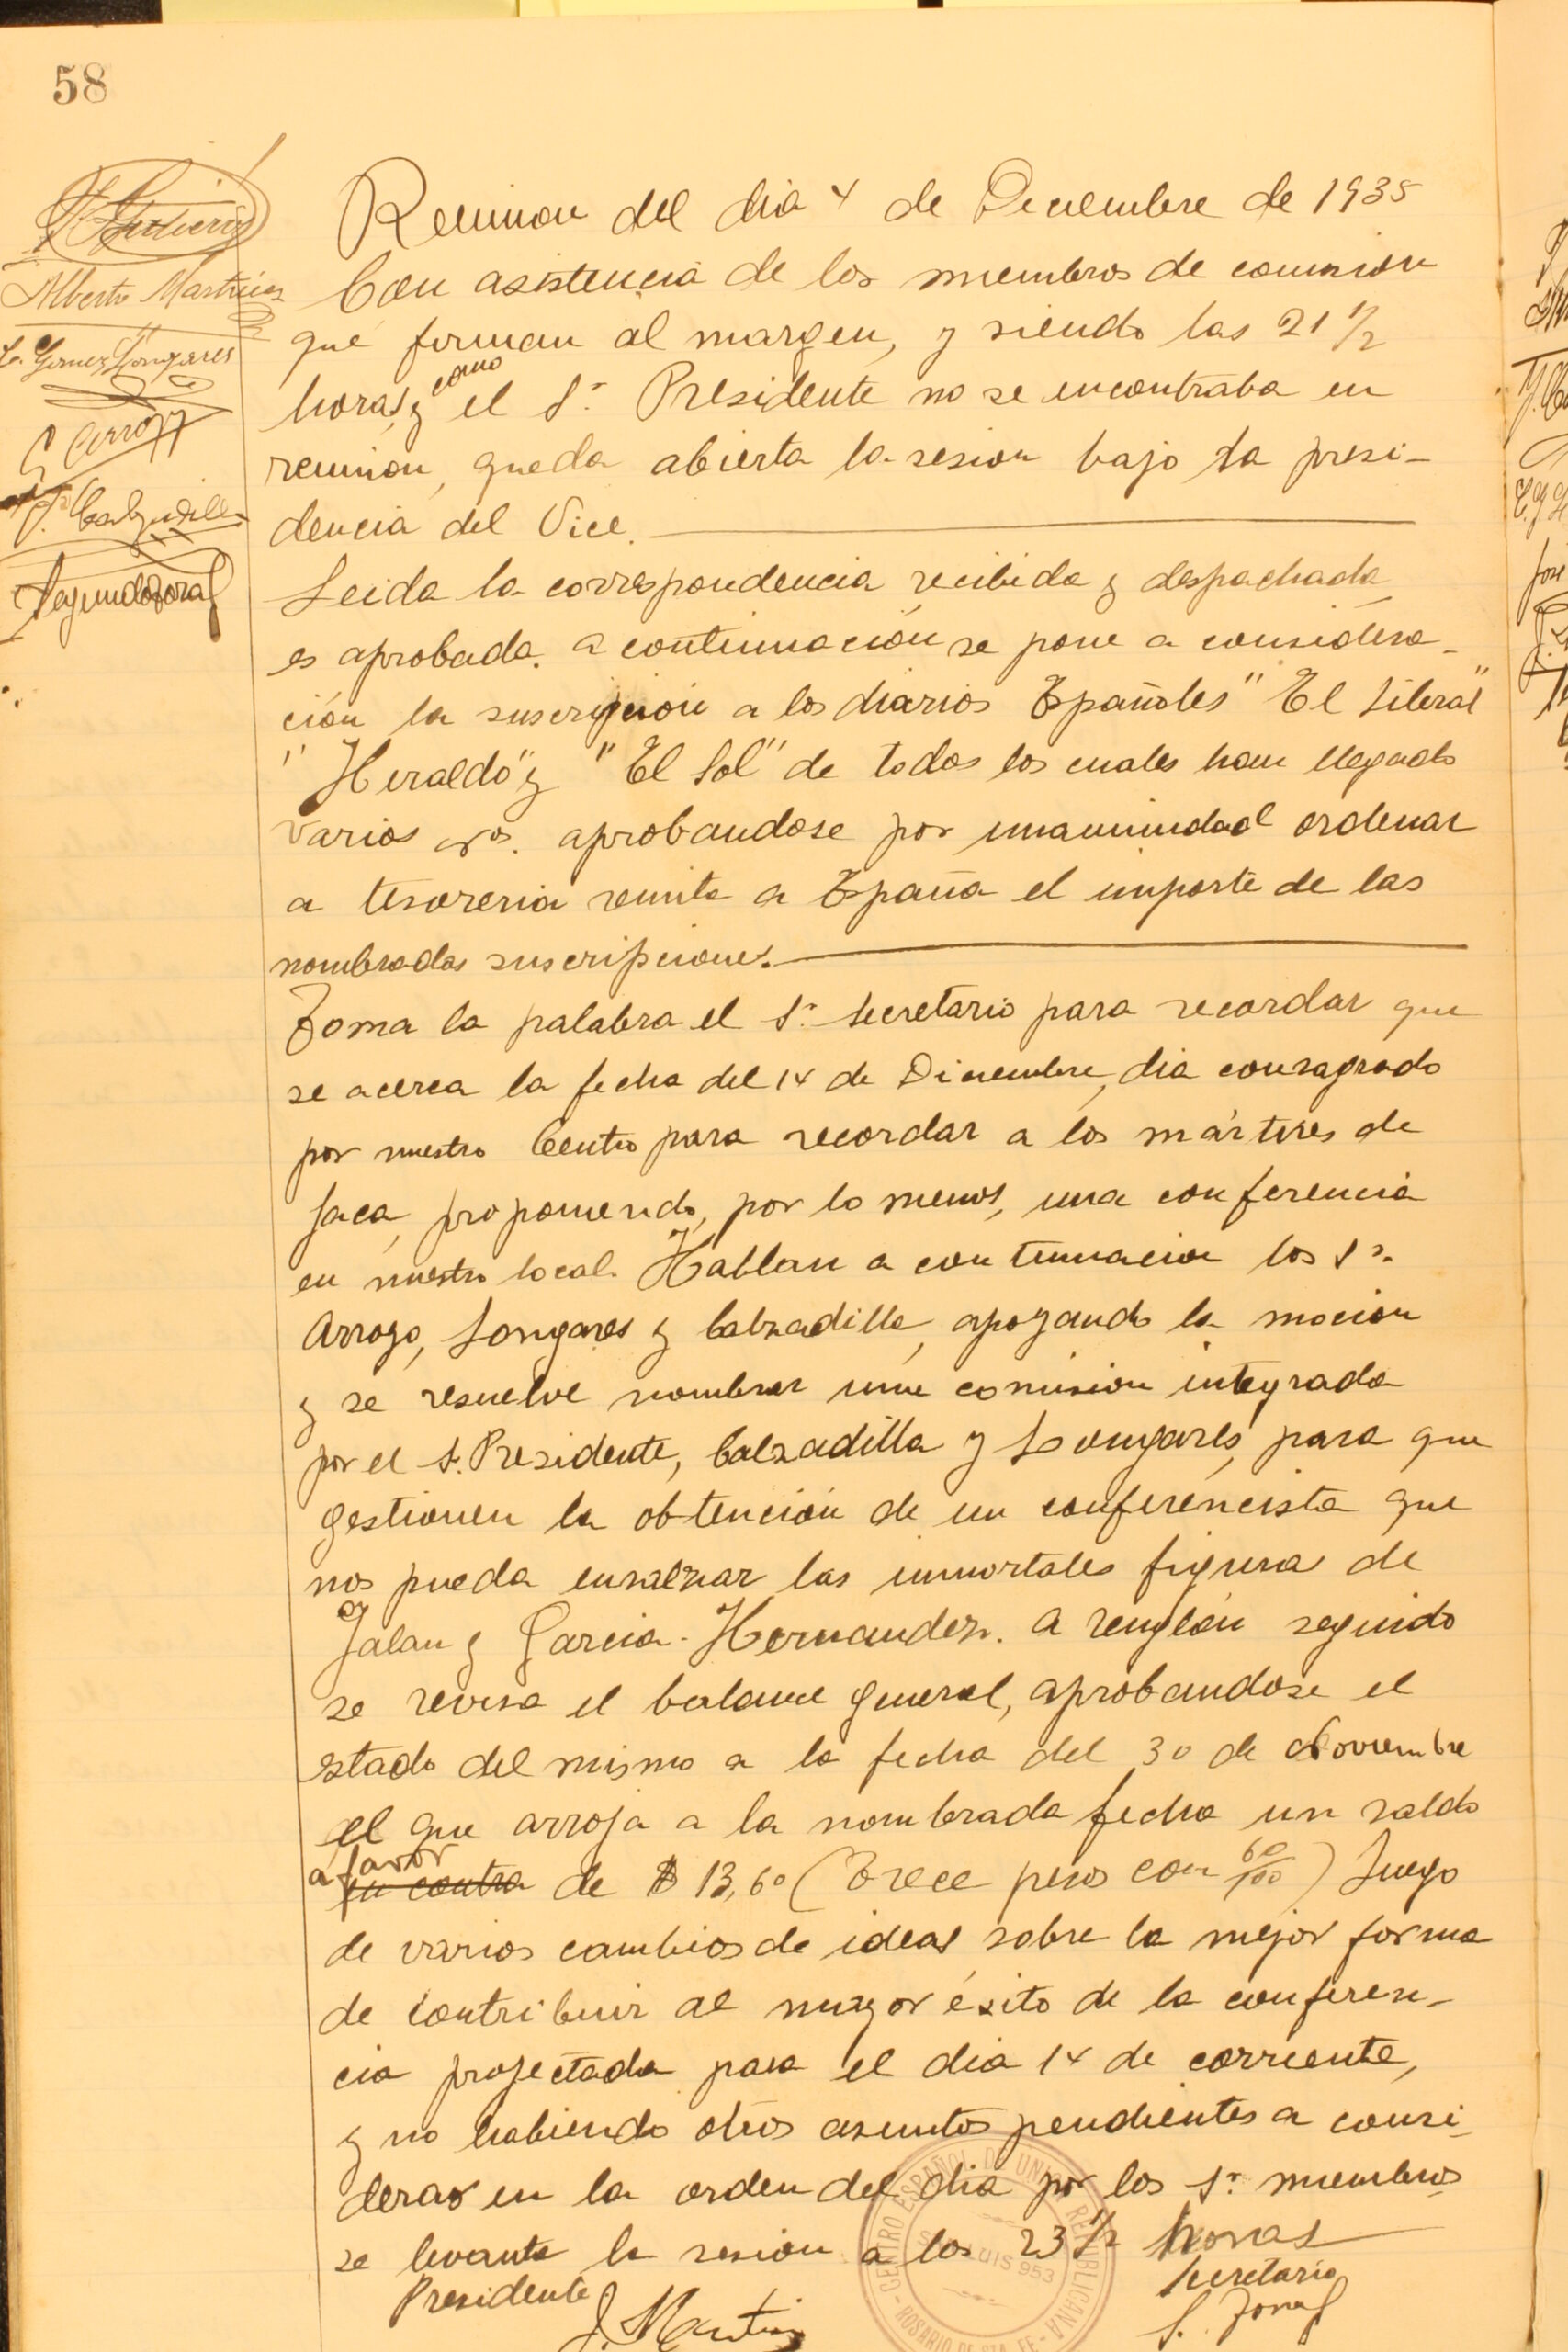 58
Reunion del dia 4 de Diciembre de 1935
Alberto Martinez
Con asistencia de los miembros de comision
que firman al margen, y siendo las 21 1/2
L. Gomez Longares
horas, y como el Sr. Presidente no se encontraba en
reunion, queda abierta la sesion bajo la presi-
dencia del Vice.
Leida la correspondencia recibida y despachada
es aprobada. a continuacion se pone a considera-
ción la suscripcion a los diarios Españoles "El Liberal"
"Heraldo" y "El Sol" de todos los cuales han llegado
varios nos. aprobandose por unanimidad ordenar
a tesoreria remita a España el importe de las
nombradas suscripciones.
Toma la palabra el Sr. Secretario para recordar que
se acerca la fecha del 14 de Diciembre, dia consagrado
por nuestro Centro para recordar a los mártires de
Jaca, proponiendo, por lo menos, una conferencia
en nuestro local. Hablan a continuacion los Srs.
Arroyo, Longares y Calzadilla, apoyando la mocion
y se resuelve nombrar una comision integrada
por el S. Presidente, Calzadilla y Longares, para que
gestionen la obtención de un conferencista que
nos pueda ensalzar las inmortales figuras de
Galan y Garcia-Hernandez. A renglón seguido
se revisa el balance general, aprobandose el
estado del mismo a la fecha del 30 de Noviembre
el que arroja a la nombrada fecha un saldo
a favor en contra de $ 13,60 (Trece pesos con 60/100) Luego
de varios cambios de ideas sobre la mejor forma
de contribuir al mayor éxito de la conferen-
cia projectada para el dia 14 de corriente,
y no habiendo otros asuntos pendientes a consi-
derar en la orden del dia por los Sr. miembros
se levanta la sesion a las 23 1/2 horas
Presidente
Secretario
J. Martinez
CENTRO ESPAÑOL DE UNION REPUBLICANA
SAN LUIS 953
ROSARIO DE STA. FE